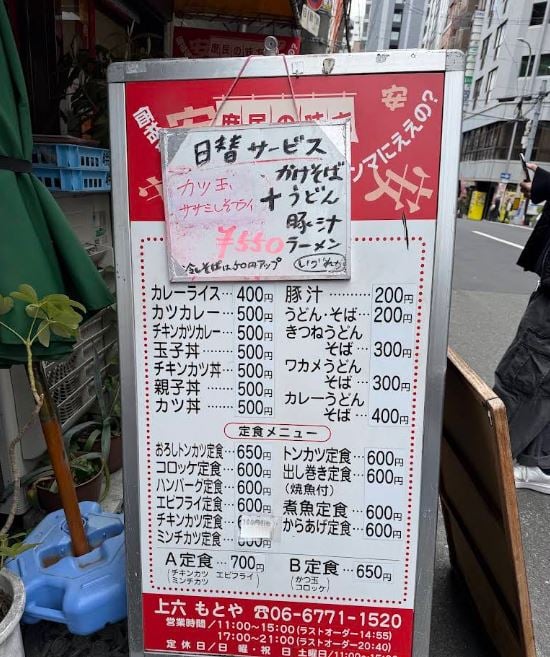 安
庶民の味方
価格
ホンマにええの?
安
日替サービス
カツ玉
ササミしそフライ
¥550
+
かけそば
うどん
豚汁
ラーメン
いづれか
冷しそばは50円アップ
カレーライス…400円
カツカレー……500円
チキンカツカレー…500円
玉子丼…………500円
チキンカツ丼…500円
親子丼…………500円
カツ丼…………500円
豚汁…………200円
うどん・そば…200円
きつねうどん
そば…300円
ワカメうどん
そば…300円
カレーうどん
そば…400円
定食メニュー
おろしトンカツ定食…650円
コロッケ定食…600円
ハンバーグ定食…600円
エビフライ定食…600円
チキンカツ定食…
ミンチカツ定食…
トンカツ定食…600円
出し巻き定食…600円
(焼魚付)
煮魚定食…600円
からあげ定食…600円
A定食…700円
(チキンカツ エビフライ
ミンチカツ)
B定食…650円
(カツ玉
コロッケ)
上六 もとや ☎06-6771-1520
営業時間/11:00~15:00(ラストオーダー14:55)
17:00~21:00(ラストオーダー20:40)
定休日/日曜・祝日 土曜日/11:00~15:00